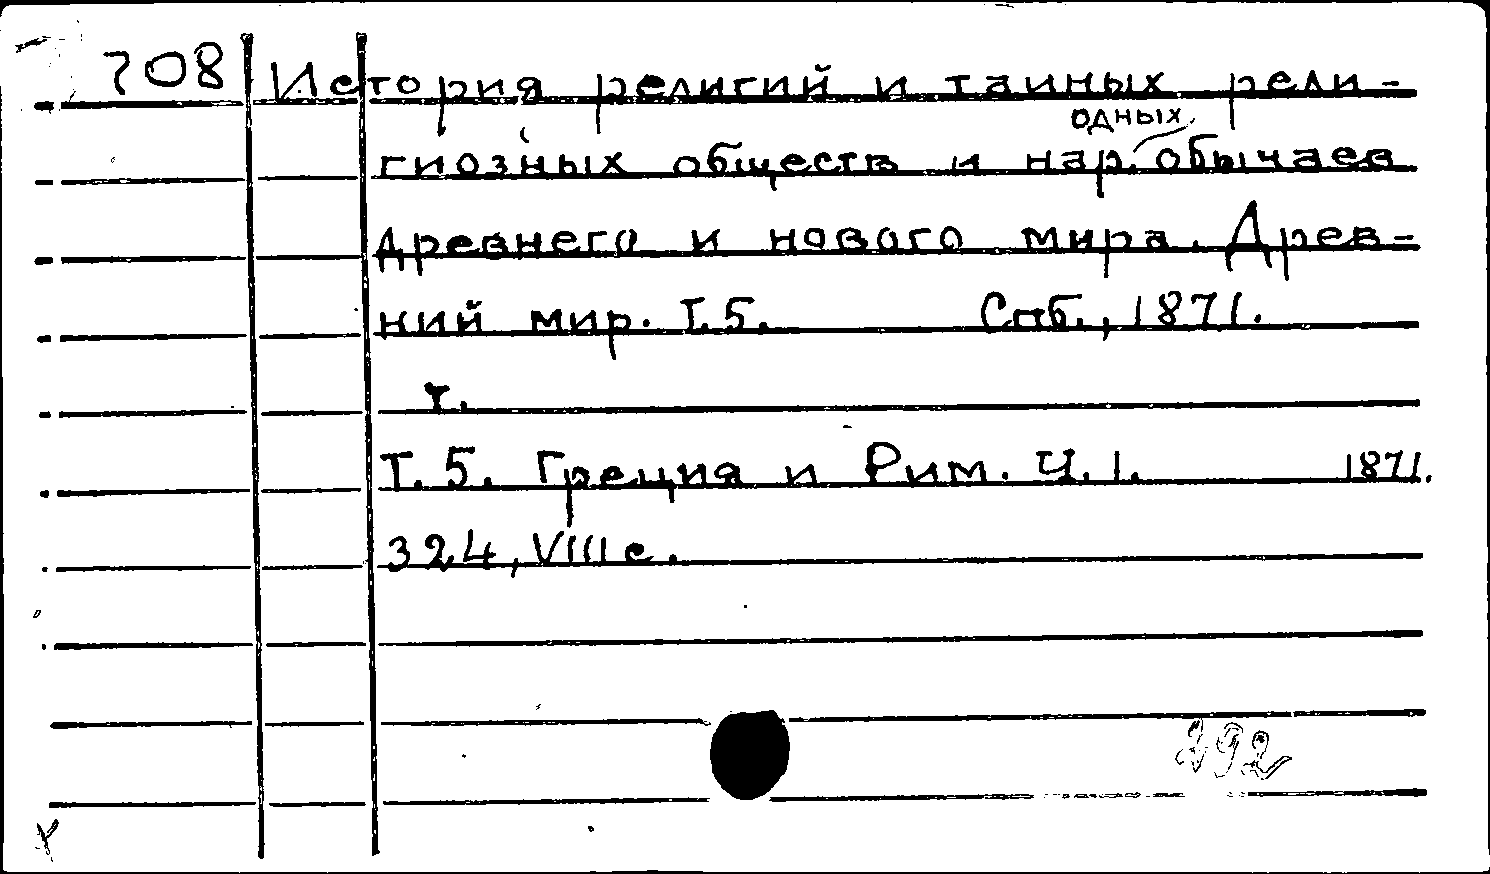 708 История религий и таиных рели-
одных
гиозных обществ и нар. обычаев
древнего и нового мира. Древ-
ний мир. Т.5. Спб., 1871.
т.
Т. 5. Греция и Рим. Ч. 1. 1871.
324, VIII с.
292